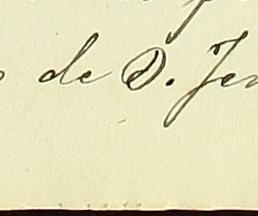 de D. Jen